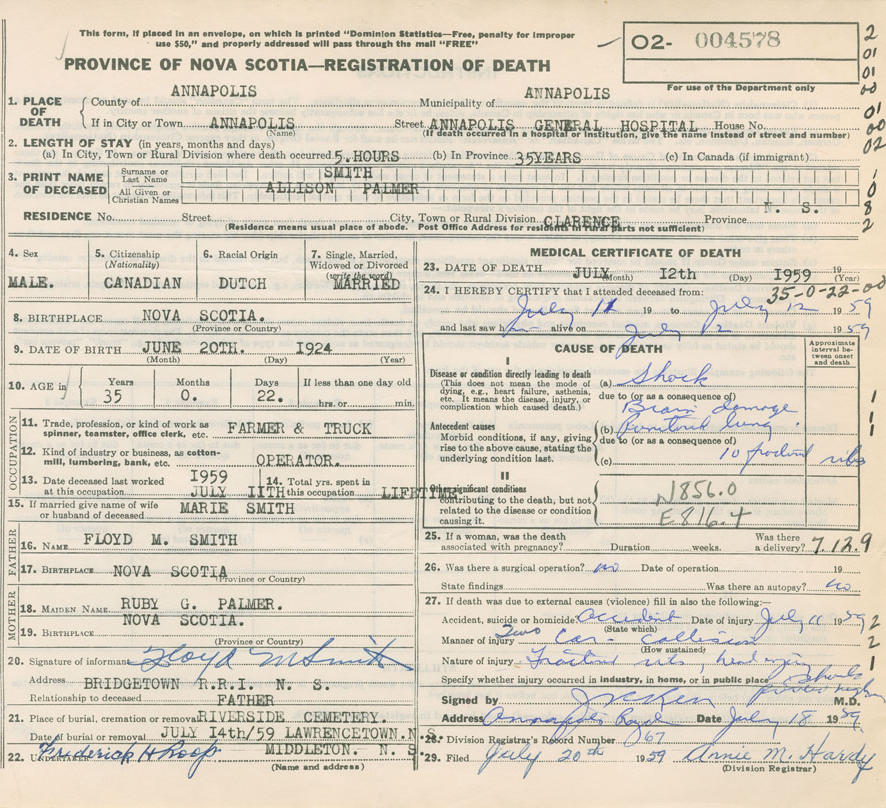 This form, if placed in an envelope, on which is printed "Dominion Statistics—Free, penalty for improper
use $50," and properly addressed will pass through the mail "FREE"
PROVINCE OF NOVA SCOTIA—REGISTRATION OF DEATH
O2- 004578
For use of the Department only
2
01
01
00
01
00
02
1. PLACE OF DEATH
County of ANNAPOLIS Municipality of ANNAPOLIS
If in City or Town ANNAPOLIS Street ANNAPOLIS GENERAL HOSPITAL House No.
(Name) (If death occurred in a hospital or institution, give the name instead of street and number)
2. LENGTH OF STAY (in years, months and days)
(a) In City, Town or Rural Division where death occurred 5.HOURS (b) In Province 35YEARS (c) In Canada (if immigrant)
3. PRINT NAME OF DECEASED
Surname or Last Name SMITH
All Given or Christian Names ALLISON PALMER
1
0
8
2
RESIDENCE No. Street City, Town or Rural Division CLARENCE Province N. S.
(Residence means usual place of abode. Post Office Address for residents in rural parts not sufficient)
4. Sex
MALE.
5. Citizenship
(Nationality)
CANADIAN
6. Racial Origin
DUTCH
7. Single, Married,
Widowed or Divorced
(write the word)
MARRIED
8. BIRTHPLACE NOVA SCOTIA.
(Province or Country)
9. DATE OF BIRTH JUNE 20TH. 1924
(Month) (Day) (Year)
10. AGE in
Years Months Days If less than one day old
35 0. 22. hrs. or min.
OCCUPATION
11. Trade, profession, or kind of work as
spinner, teamster, office clerk, etc. FARMER & TRUCK
12. Kind of industry or business, as cotton-
mill, lumbering, bank, etc. OPERATOR.
13. Date deceased last worked 1959 14. Total yrs. spent in
at this occupation JULY 11TH this occupation LIFETIME
15. If married give name of wife
or husband of deceased MARIE SMITH
FATHER
16. NAME FLOYD M. SMITH
17. BIRTHPLACE NOVA SCOTIA
(Province or Country)
MOTHER
18. MAIDEN NAME RUBY G. PALMER.
19. BIRTHPLACE NOVA SCOTIA.
(Province or Country)
20. Signature of informant Floyd M Smith
Address BRIDGETOWN R.R.I. N. S.
Relationship to deceased FATHER
21. Place of burial, cremation or removal RIVERSIDE CEMETERY.
Date of burial or removal JULY 14th/59 LAWRENCETOWN.N S.
22. UNDERTAKER Frederick H Roop MIDDLETON. N. S
(Name and address)
MEDICAL CERTIFICATE OF DEATH
23. DATE OF DEATH JULY 12th 1959 19
(Month) (Day) (Year)
35-0-22-00
24. I HEREBY CERTIFY that I attended deceased from:
July 11 19 to July 12 1959
and last saw him alive on July 12 1959
CAUSE OF DEATH
Approximate
interval be-
tween onset
and death
I
Disease or condition directly leading to death
(This does not mean the mode of
dying, e.g., heart failure, asthenia,
etc. It means the disease, injury, or
complication which caused death.)
(a) Shock
due to (or as a consequence of)
Brain damage
Antecedent causes
Morbid conditions, if any, giving
rise to the above cause, stating the
underlying condition last.
(b) lung
due to (or as a consequence of)
(c) 10 ribs
1
1
1
II
Other significant conditions
contributing to the death, but not
related to the disease or condition
causing it.
N856.0
E816.4
25. If a woman, was the death Was there
associated with pregnancy? Duration weeks. a delivery? 7.12.9
26. Was there a surgical operation? no Date of operation 19
State findings Was there an autopsy? no
27. If death was due to external causes (violence) fill in also the following:—
Accident, suicide or homicide? Accident Date of injury July 11 1959 2
(State which)
Manner of injury Two Car Collision 2
(How sustained)
Nature of injury Fractured ribs, head injury 1
Specify whether injury occurred in industry, in home, or in public place
Signed by M.D.
Address Annapolis Royal Date July 18 1959
28. Division Registrar's Record Number 67
29. Filed July 20th 1959 Annie M. Hardy
(Division Registrar)